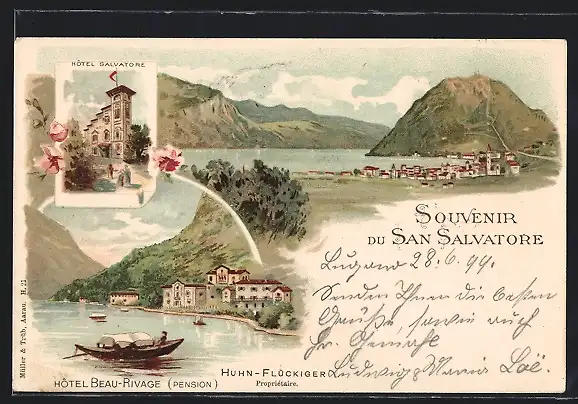 HÔTEL SALVATORE
SOUVENIR
DU SAN SALVATORE
Lugano 28.6.99.
Senden Ihnen die besten
Grüße, sowie auch
Ihr. Gemahl
Ludwig & Maria
HUHN-FLÜCKIGER
Propriétaire.
HÔTEL BEAU-RIVAGE (PENSION)
Müller & Trüb, Aarau. H. 21